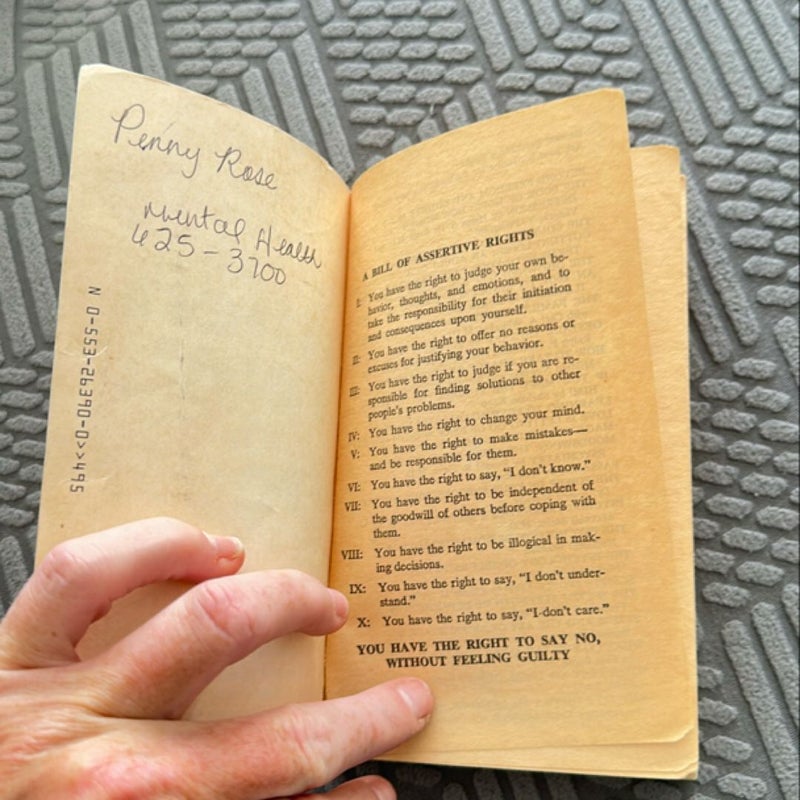 Penny Rose
Mental Health
625-3700
N 0-553-26390-0>>495
A BILL OF ASSERTIVE RIGHTS
I: You have the right to judge your own be-
havior, thoughts, and emotions, and to
take the responsibility for their initiation
and consequences upon yourself.
II: You have the right to offer no reasons or
excuses for justifying your behavior.
III: You have the right to judge if you are re-
sponsible for finding solutions to other
people's problems.
IV: You have the right to change your mind.
V: You have the right to make mistakes—
and be responsible for them.
VI: You have the right to say, “I don't know.”
VII: You have the right to be independent of
the goodwill of others before coping with
them.
VIII: You have the right to be illogical in mak-
ing decisions.
IX: You have the right to say, “I don't under-
stand.”
X: You have the right to say, “I don't care.”
YOU HAVE THE RIGHT TO SAY NO,
WITHOUT FEELING GUILTY